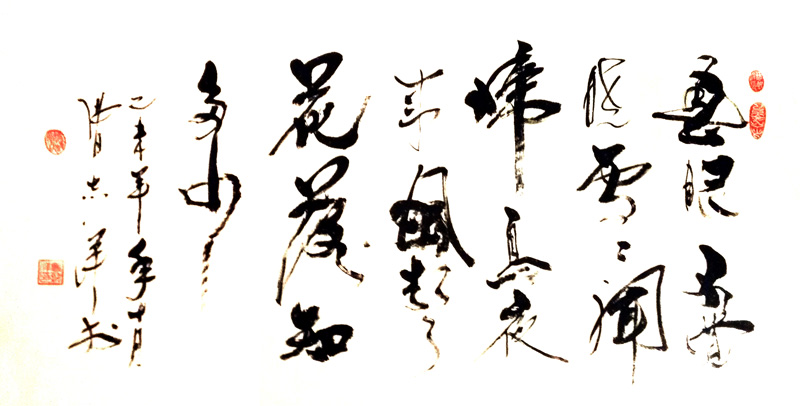 春眠不覺
曉處々聞
啼鳥夜
來風雨声
花落知
多少
乙未羊年十月
书